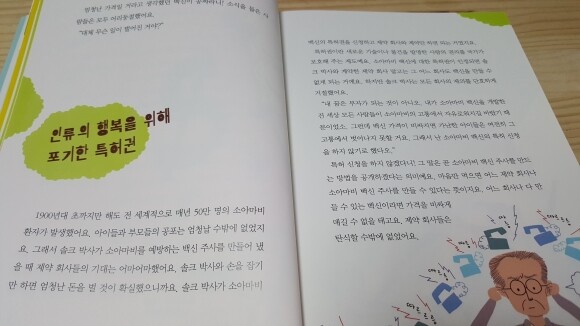 엄청난 가격일 거라고 생각했던 백신이 공짜라니! 소식을 들은 사
람들은 모두 어리둥절했어요.
"대체 무슨 일이 벌어진 거야?"
인류의 행복을 위해
포기한 특허권
1900년대 초까지만 해도 전 세계적으로 매년 50만 명의 소아마비
환자가 발생했어요. 아이들과 부모들의 공포는 엄청날 수밖에 없었지
요. 그래서 솔크 박사가 소아마비를 예방하는 백신 주사를 만들어 냈
을 때 제약 회사들의 기대는 어마어마했어요. 솔크 박사와 손을 잡기
만 하면 엄청난 돈을 벌 것이 확실했으니까요. 솔크 박사가 소아마비
백신의 특허권을 신청하고 제약 회사와 계약만 하면 되는 거였지요.
특허권이란 새로운 기술이나 물건을 발명한 사람의 권리를 국가가
보호해 주는 제도예요. 소아마비 백신에 대한 특허권이 인정되면 솔
크 박사와 계약한 제약 회사 말고는 그 어느 회사도 백신을 만들 수
없게 되는 거예요. 하지만 솔크 박사는 모든 회사의 제의를 단호하게
거절했어요.
"내 꿈은 부자가 되는 것이 아니오. 내가 소아마비 백신을 개발한
건 세상 모든 사람들이 소아마비의 고통에서 자유로워지길 바랐기 때
문이었소. 그런데 백신 가격이 비싸지면 가난한 아이들은 여전히 그
고통에서 벗어나지 못할 거요. 그래서 난 소아마비 백신의 특허 신청
을 하지 않기로 했다오."
특허 신청을 하지 않겠다니! 그 말은 곧 소아마비 백신 주사를 만드
는 방법을 공개하겠다는 의미예요. 마음만 먹으면 어느 제약 회사나
소아마비 백신 주사를 만들 수 있다는 뜻이지요. 어느 회사나 다 만
들 수 있는 백신이라면 가격을 비싸게
매길 수 없을 테고요. 제약 회사들은
탄식할 수밖에 없었어요.
따르릉